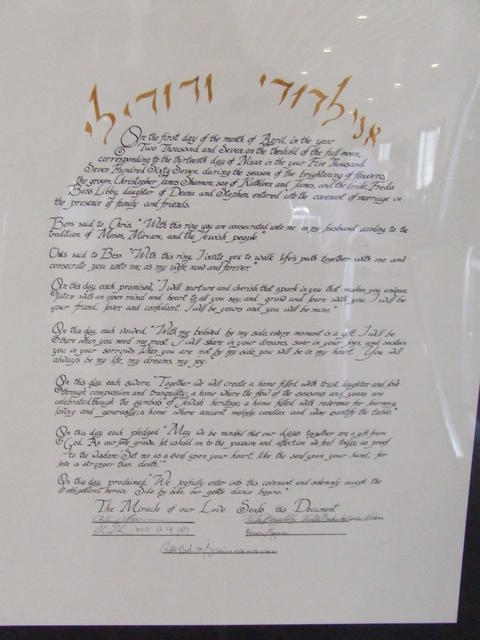 אני לדודי ודודי לי
On the first day of the month of April, in the year
Two Thousand and Seven, on the threshold of the full moon,
corresponding to the thirteenth day of Nisan in the year Five Thousand
Seven Hundred Sixty Seven, during the season of the brightening of flowers,
the groom, Christopher James Shannon, son of Kathleen and James, and the bride, Freda
Bess Libby, daughter of Deena and Stephen, entered into the covenant of marriage in
the presence of family and friends.
Bess said to Chris, "With this ring you are consecrated unto me as my husband according to the
tradition of Moses, Miriam, and the Jewish people."
Chris said to Bess "With this ring, I invite you to walk life's path together with me and
consecrate you unto me, as my wife, now and forever."
On this day each promised, "I will nurture and cherish that spark in you that makes you unique,
listen with an open mind and heart to all you say, and grow and learn with you. I will be
your friend, lover and confidant. I will be yours and you will be mine."
On this day each vowed, "With my beloved by my side, every moment is a gift. I will be
there when you need me most. I will share in your dreams, soar in your joys, and sustain
you in your sorrows. When you are not by my side, you will be in my heart. You will
always be my life, my dreams, my joy."
On this day, each swore, "Together we will create a home filled with trust, laughter and love
through compassion and tranquility; a home where the flow of the seasons and years are
celebrated through the symbols of Jewish heritage; a home filled with reverence for learning,
loving and generosity; a home where ancient melody, candles and wine sanctify the table."
On this day each pledged "May we be mindful that our days together are a gift from
God. As our love grows, let us hold on to the passion and affection we feel today, as proof
to the wisdom: Set me as a seal upon your heart, like the seal upon your hand, for
love is stronger than death."
On this day, proclaimed, "We joyfully enter into this covenant and solemnly accept the
obligations herein. Side by side, our gentle dance begins."
The Miracle of our Love Seals this Document